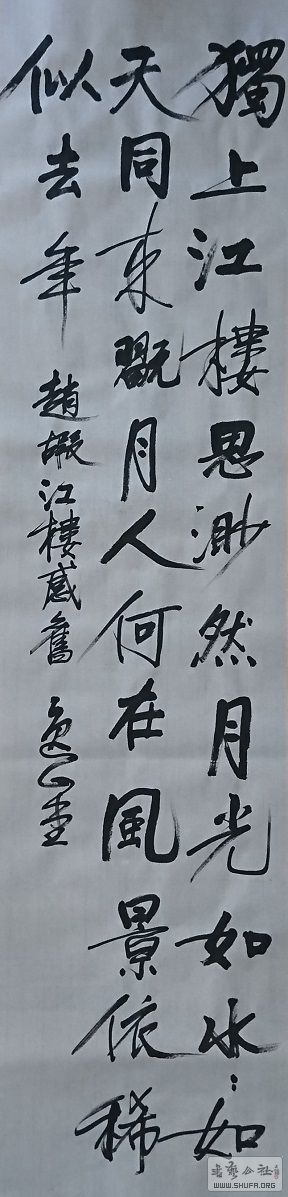 獨上江樓思渺然月光如水:如
天同来翫月人何在風景依稀
似去年 趙嘏江樓感舊
书艺公社
WWW.SHUFA.ORG